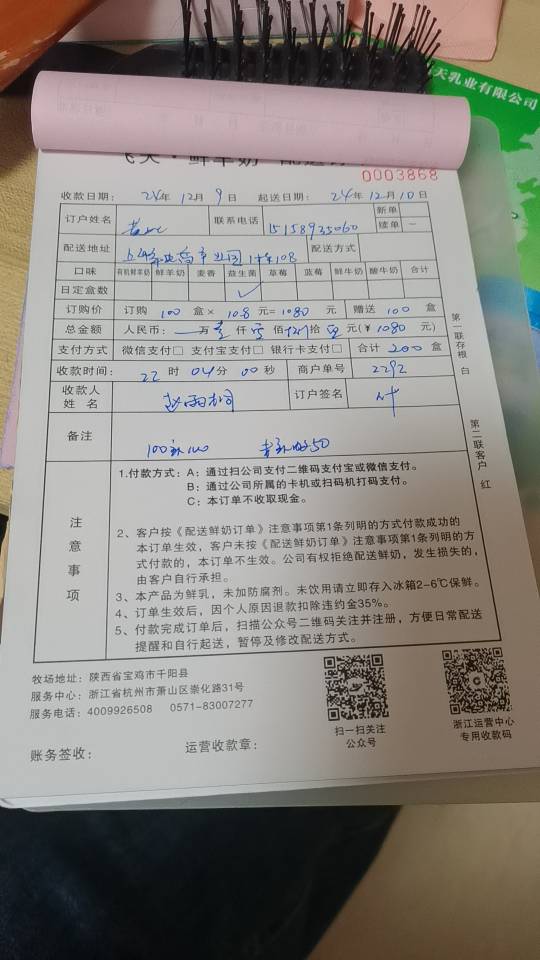 天乳业有限公司
飞天·鲜羊奶 配送
0003868
收款日期： 24年 12月 9日 起送日期： 24年 12月 10日
订户姓名 联系电话 15158935060 新单
续单 一
配送地址 1幢108 配送方式
口味 有机鲜羊奶 鲜羊奶 麦香 益生菌 草莓 蓝莓 鲜牛奶 酸牛奶 合计
日定盒数 ✓
订购价 订购 100 盒× 10.8 元= 1080 元 赠送 100 盒
总金额 人民币： 一万壹仟零佰捌拾零元(￥1080 元)
支付方式 微信支付□ 支付宝支付□ 银行卡支付□ 合计 200 盒
收款时间： 22 时 04 分 00 秒 商户单号 2292
收款人姓名 订户签名
备注 100 50
注意事项
1.付款方式：A：通过扫公司支付二维码支付宝或微信支付。
B：通过公司所属的卡机或扫码机打码支付。
C：本订单不收取现金。
2、客户按《配送鲜奶订单》注意事项第1条列明的方式付款成功的
本订单生效，客户未按《配送鲜奶订单》注意事项第1条列明的方
式付款的，本订单不生效。公司有权拒绝配送鲜奶，发生损失的，
由客户自行承担。
3、本产品为鲜乳，未加防腐剂。未饮用请立即存入冰箱2-6℃保鲜。
4、订单生效后，因个人原因退款扣除违约金35%。
5、付款完成订单后，扫描公众号二维码关注并注册，方便日常配送
提醒和自行起送，暂停及修改配送方式。
第一联存根 白
第二联客户 红
牧场地址：陕西省宝鸡市千阳县
服务中心：浙江省杭州市萧山区崇化路31号
服务电话：4009926508 0571-83007277
扫一扫关注
公众号
浙江运营中心
专用收款码
账务签收： 运营收款章：